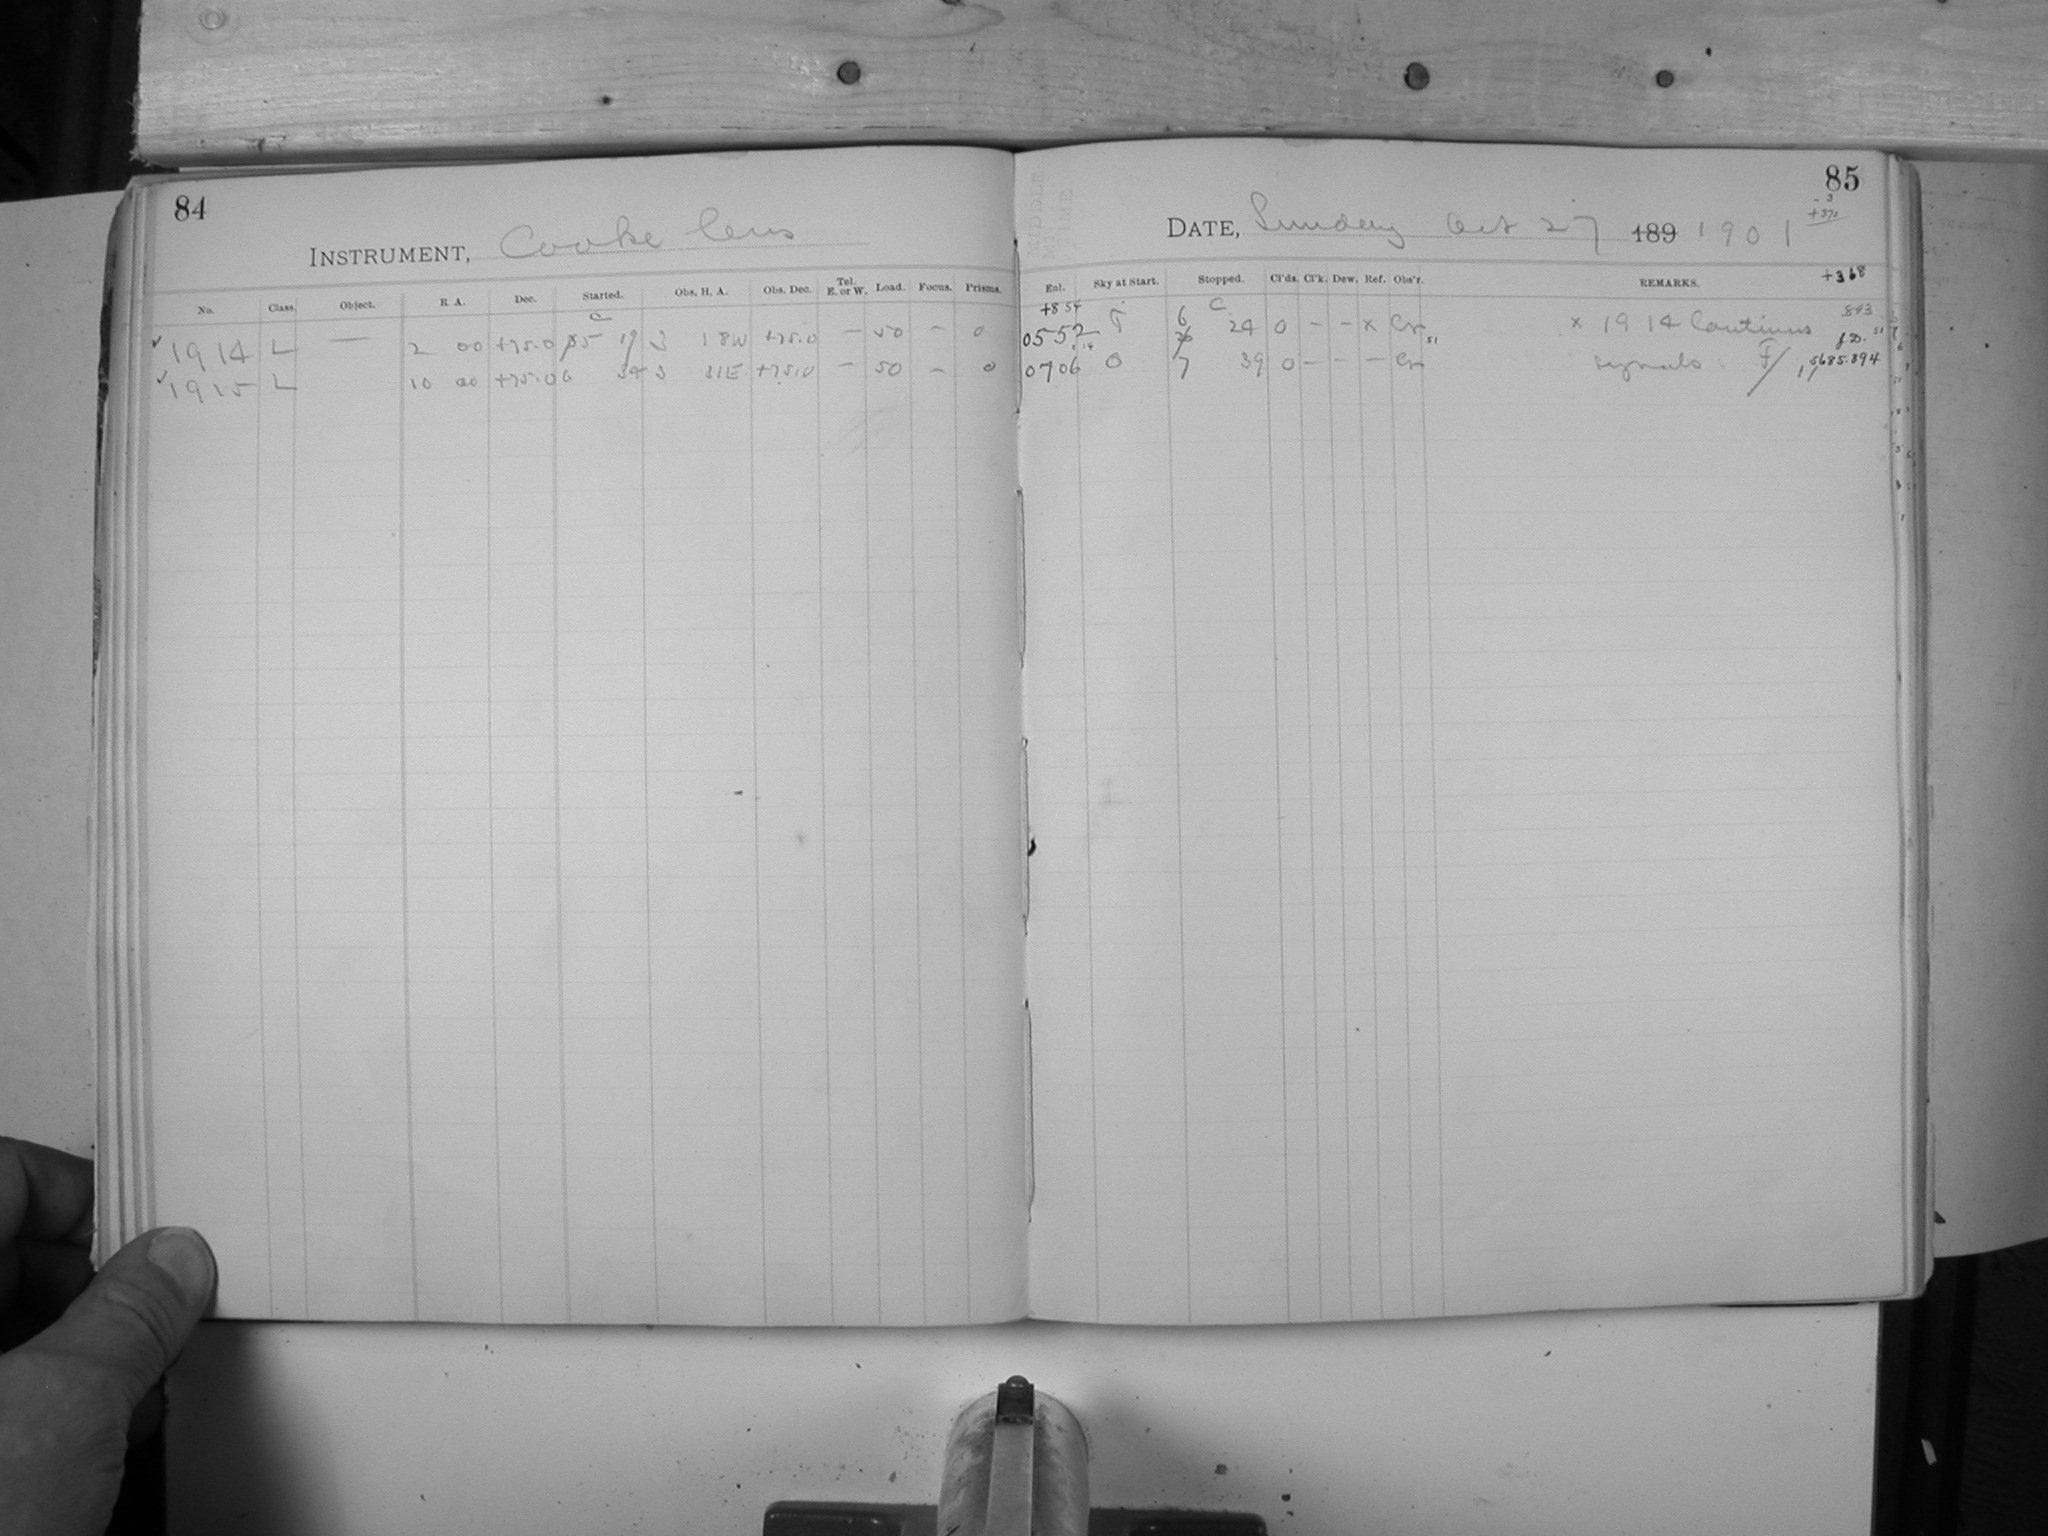 84
INSTRUMENT, Cooke lens
No. Class. Object. R. A. Dec. Started. Obs. H. A. Obs. Dec. Tel. E. or W. Load. Focus. Prisms.
C
✓ 1914 L — 2 00 +75.0 05 19 3 18W +75.0 — 50 – 0
✓ 1915 L 10 00 +75.0 6 34 3 31E +75.0 — 50 – 0
85
- 3
+370
DATE, Sunday Oct 27 189 1901
+368
Enl. Sky at Start. Stopped. Cl'ds. Cl'k. Dew. Ref. Obs'r. REMARKS.
+8 54 C
0552 6 24 0 – – x x 1914 Continuus .843
0706 0 7 39 0 – – – signals 5685.894